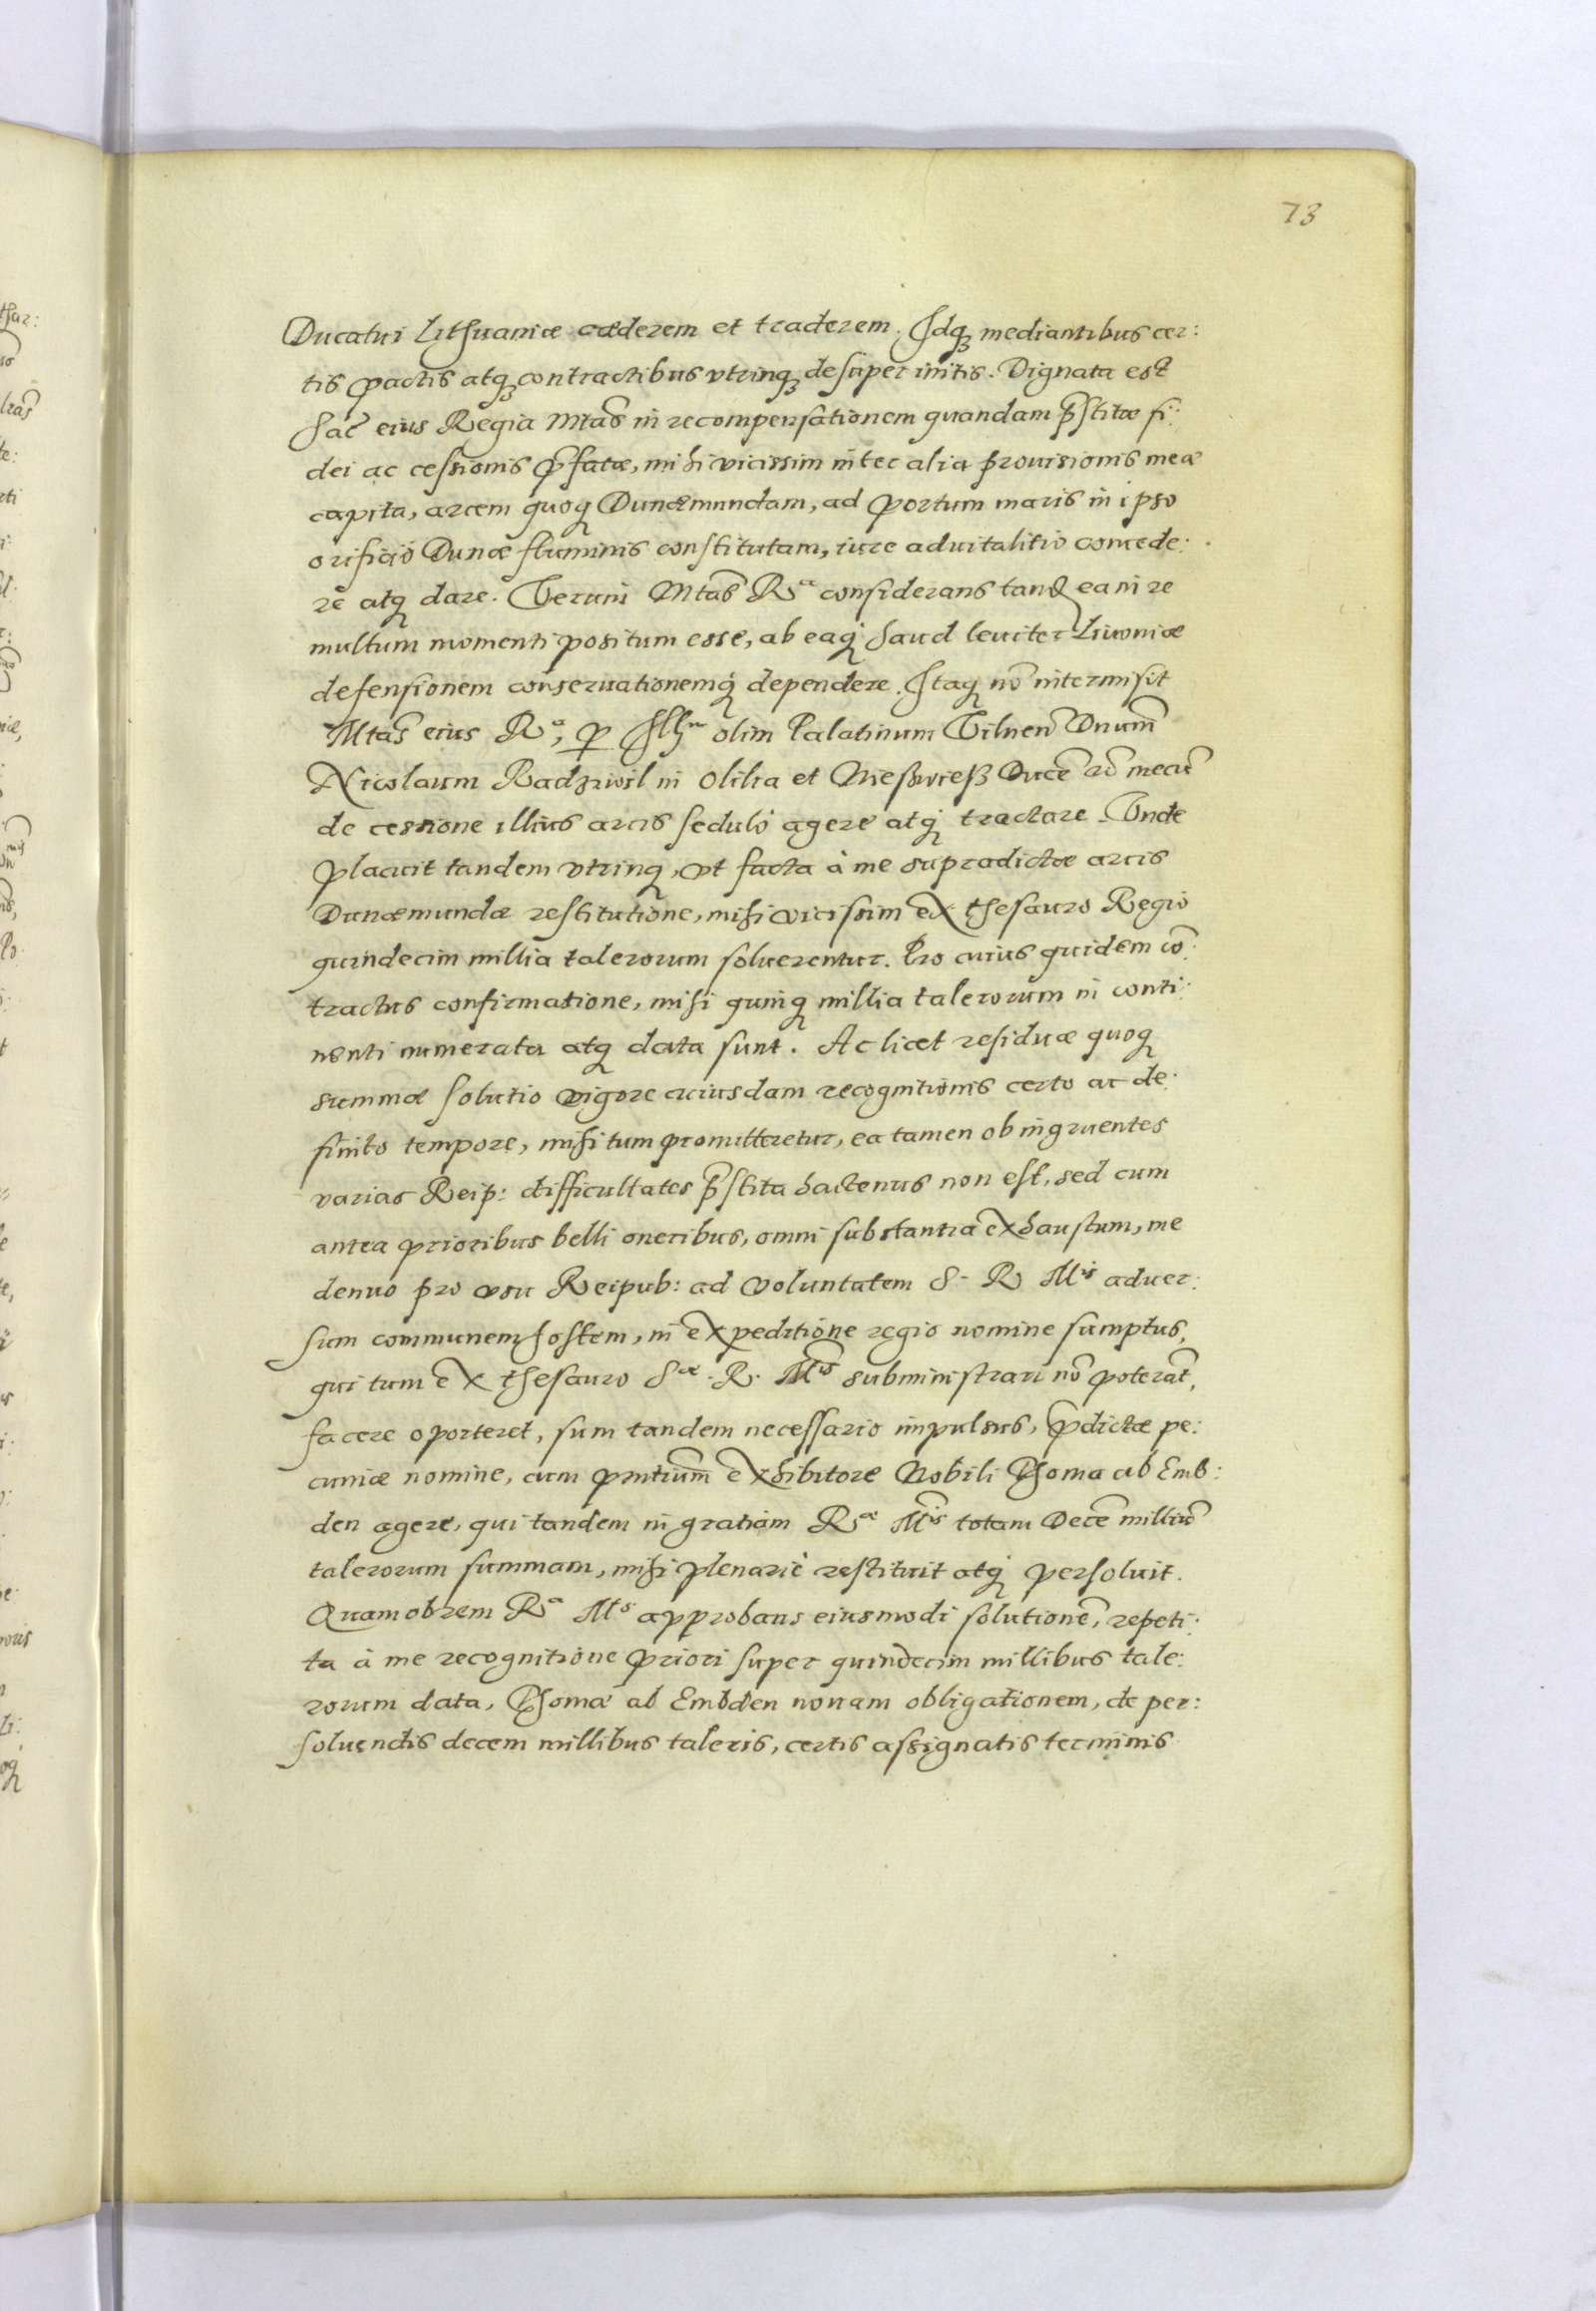 73
Ducatui Lithuaniæ cæderem et traderem. Idq mediantibus cer:
tis pactis atq contractibus vtrinq desuper initis. Dignata est
Sac̃ eius Regia Mtas̃ in recompensationem quandam p̃stitæ fi:
dei ac cessionis p̃fatæ, mihi vicissim inter alia prouisionis meæ
capita, arcem quoq Dunæmundam, ad portum maris in ipso
orificio Dunæ fluminis constitutam, iure aduitalitio concede:
re atq dare. Verum Mtas̃ Rᵃ considerans tandẽ ea in re
multum momenti positum esse, ab eaq haud leuiter Liuoniæ
defensionem conseruationemq dependere. Itaq nõ intermisit
Mtas̃ eius Rᵃ, p Illᵐ olim Palatinum Vilneñ Dnum̃
Nicolaum Radziwil in Olilia et Nieswieß Ducẽ &c̃ mecũ
de cessione illius arcis seduló agere atq tractare. Vnde
placuit tandem vtrinq, vt facta à me supradictæ arcis
Dunæmundæ restitutione, mihi vicissim ex thesauro Regio
quindecim millia talerorum soluerentur. Pro cuius quidem cõ:
tractus confirmatione, mihi quinq millia talerorum in conti:
nenti numerata atq data sunt. Ac licet residuæ quoq
summæ solutio vigore cuiusdam recognitionis certo ac de:
finito tempore, mihi tum promitteretur, ea tamen ob ingruentes
varias Reip: difficultates p̃stita hactenus non est, sed cum
antea prioribus belli oneribus, omni substantia exhaustum, me
denuo pro vsu Reipub: ad voluntatem S. R Mⁱˢ aduer:
sum communem hostem, in expeditione regio nomine sumptus,
qui tum ex thesauro Sᵃᵉ. R. Mⁱˢ subministrari nõ poterãt,
facere oporteret, sum tandem necessario impulsus, p̃dictæ pe:
cuniæ nomine, cum pntium̃ exhibitore Nobili Thoma ab Emb:
den agere, qui tandem in gratiam Rᵃᵉ Mⁱˢ totam Decẽ milliũ
talerorum summam, mihi plenariè restituit atq persoluit.
Quamobrem Rᵃ Mˢ approbans eiusmodi solutionẽ, repeti:
ta à me recognitione priori super quindecim millibus tale:
rorum data, Thomæ ab Embden nouam obligationem, de per:
soluendis decem millibus taleris, certis assignatis terminis